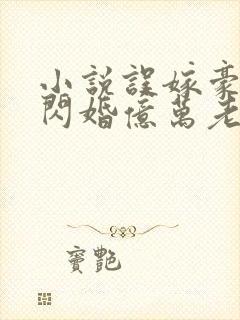 小說誤嫁豪
閃婚億萬老
竇艷